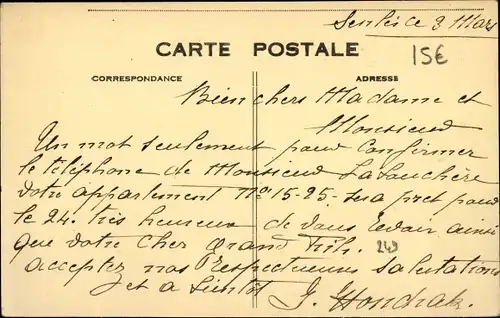 Senlis ce 3 Mars
CARTE POSTALE
15€
CORRESPONDANCE
ADRESSE
Bien chers Madame et
Monsieur
Un mot seulement pour Confirmer
le téléphone de Monsieur Lalouchère
votre appartement N° 15-25- sera pret pour
le 24. très heureux de vous revoir ainsi
que votre cher Grand Fils.
249
acceptez nos Respectueuses salutations
et a bientôt
J.